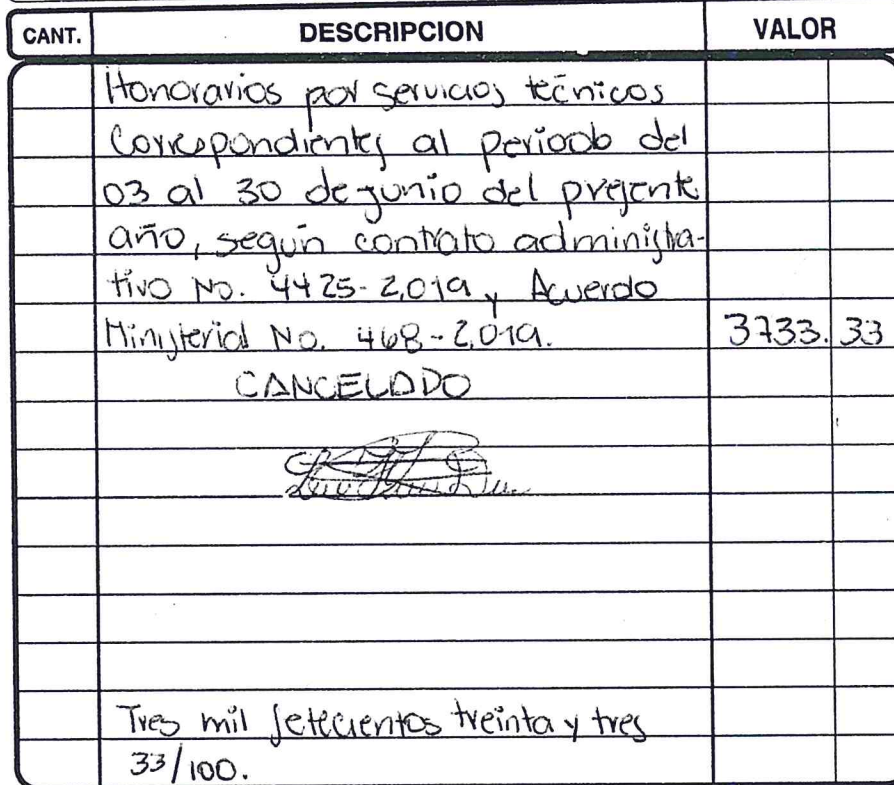 CANT. DESCRIPCION VALOR
Honorarios por servicios técnicos
Correspondientes al periodo del
03 al 30 de junio del presente
año, según contrato administra-
tivo No. 4425-2,019, Acuerdo
Ministerial No. 468-2,019. 3733.33
CANCELADO
Tres mil setecientos treinta y tres
33/100.